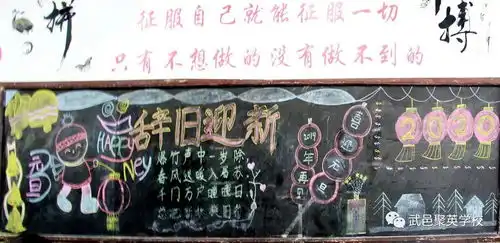 拼
征服自己就能征服一切
只有不想做的没有做不到的
搏
辞旧迎新
HAPPY
Ney
元旦
爆竹声中一岁除
春风送暖入屠苏
千门万户曈曈日
2019年再见
你好元旦
2020
武邑聚英学校